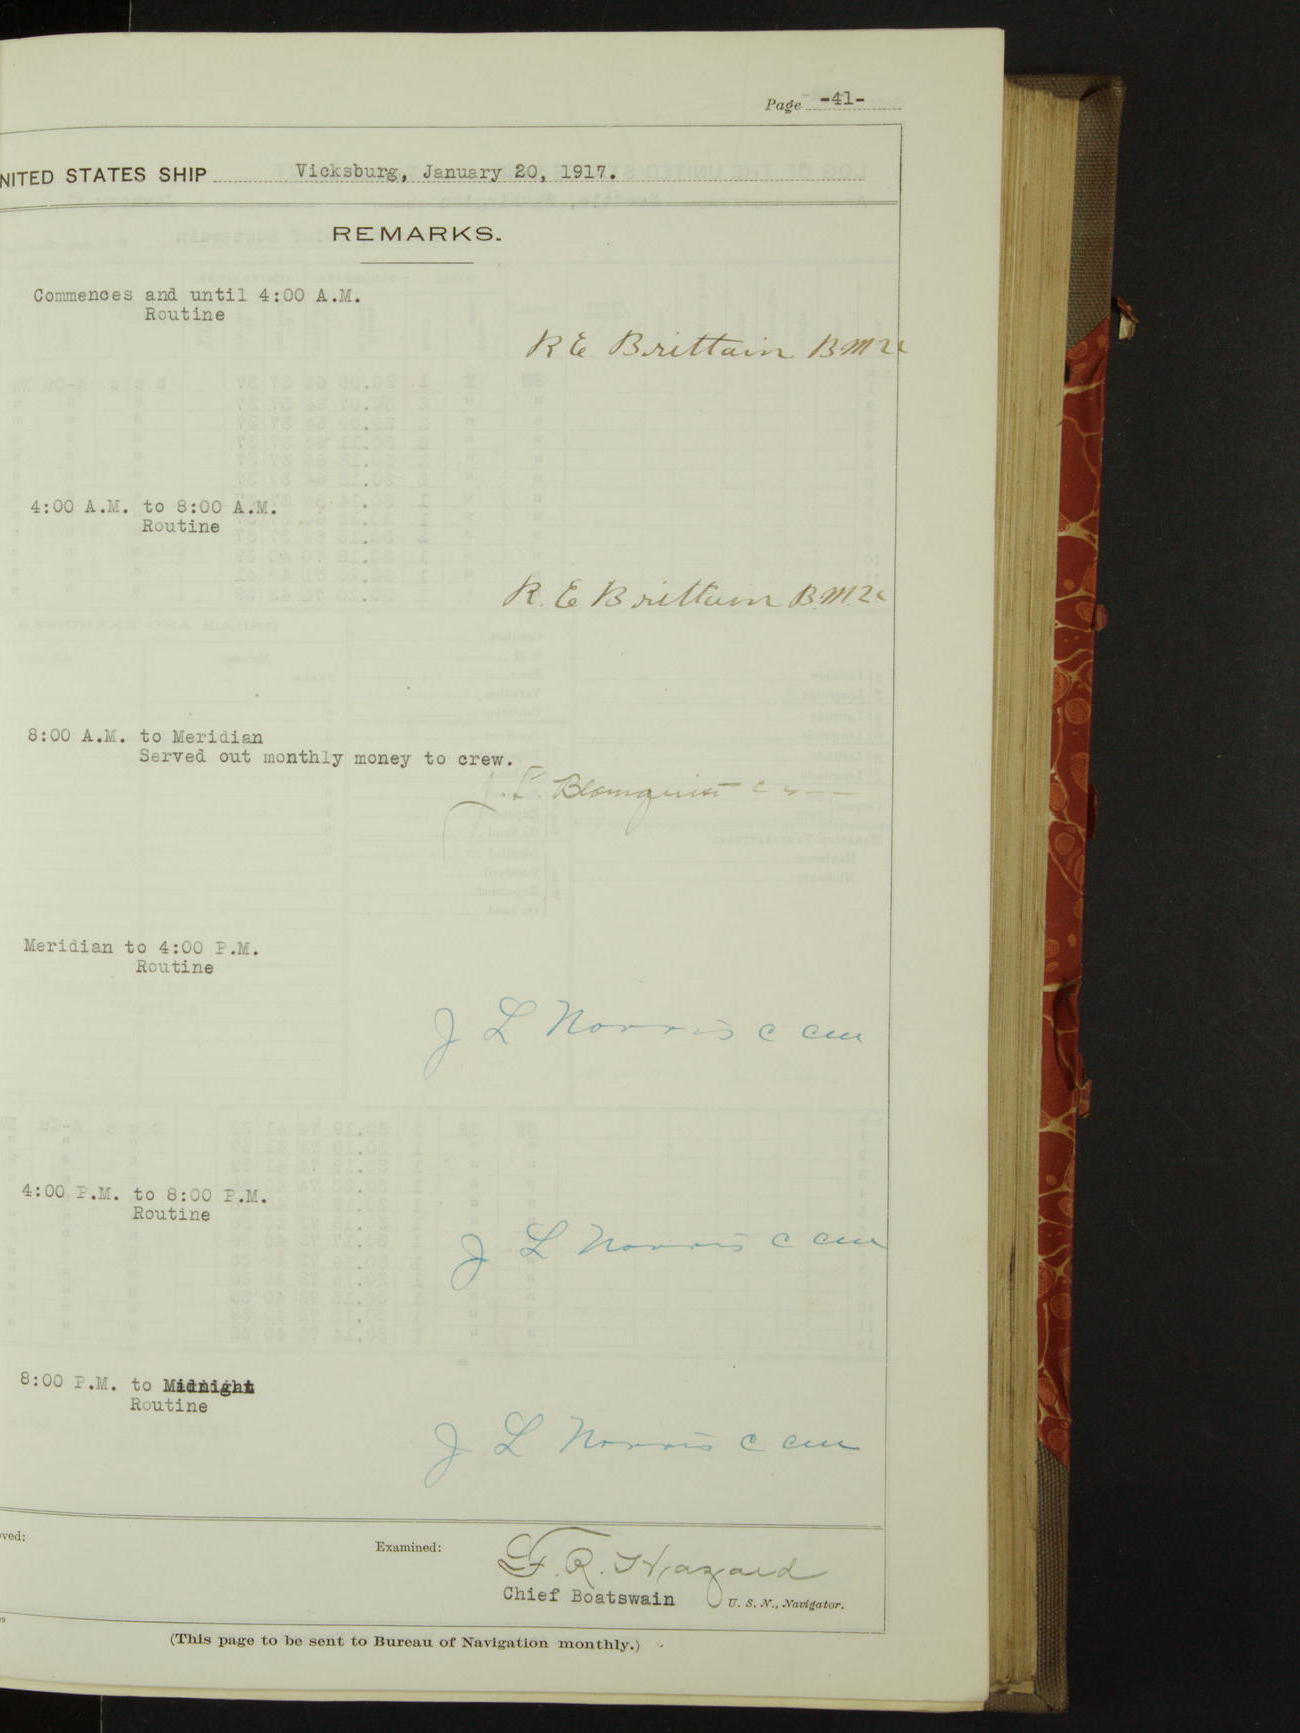 Page -41-
NITED STATES SHIP Vicksburg, January 20, 1917.
REMARKS.
Commences and until 4:00 A.M.
Routine
R E Brittain BM2c
4:00 A.M. to 8:00 A.M.
Routine
R. E Brittain B.M.2c
8:00 A.M. to Meridian
Served out monthly money to crew.
J. L. Blomquist
Meridian to 4:00 P.M.
Routine
J L Norris C CM
4:00 P.M. to 8:00 P.M.
Routine
J L Norris C CM
8:00 P.M. to Midnight
Routine
J L Norris C CM
oved:
Examined:
F. R. Hazard
Chief Boatswain U. S. N., Navigator.
(This page to be sent to Bureau of Navigation monthly.)